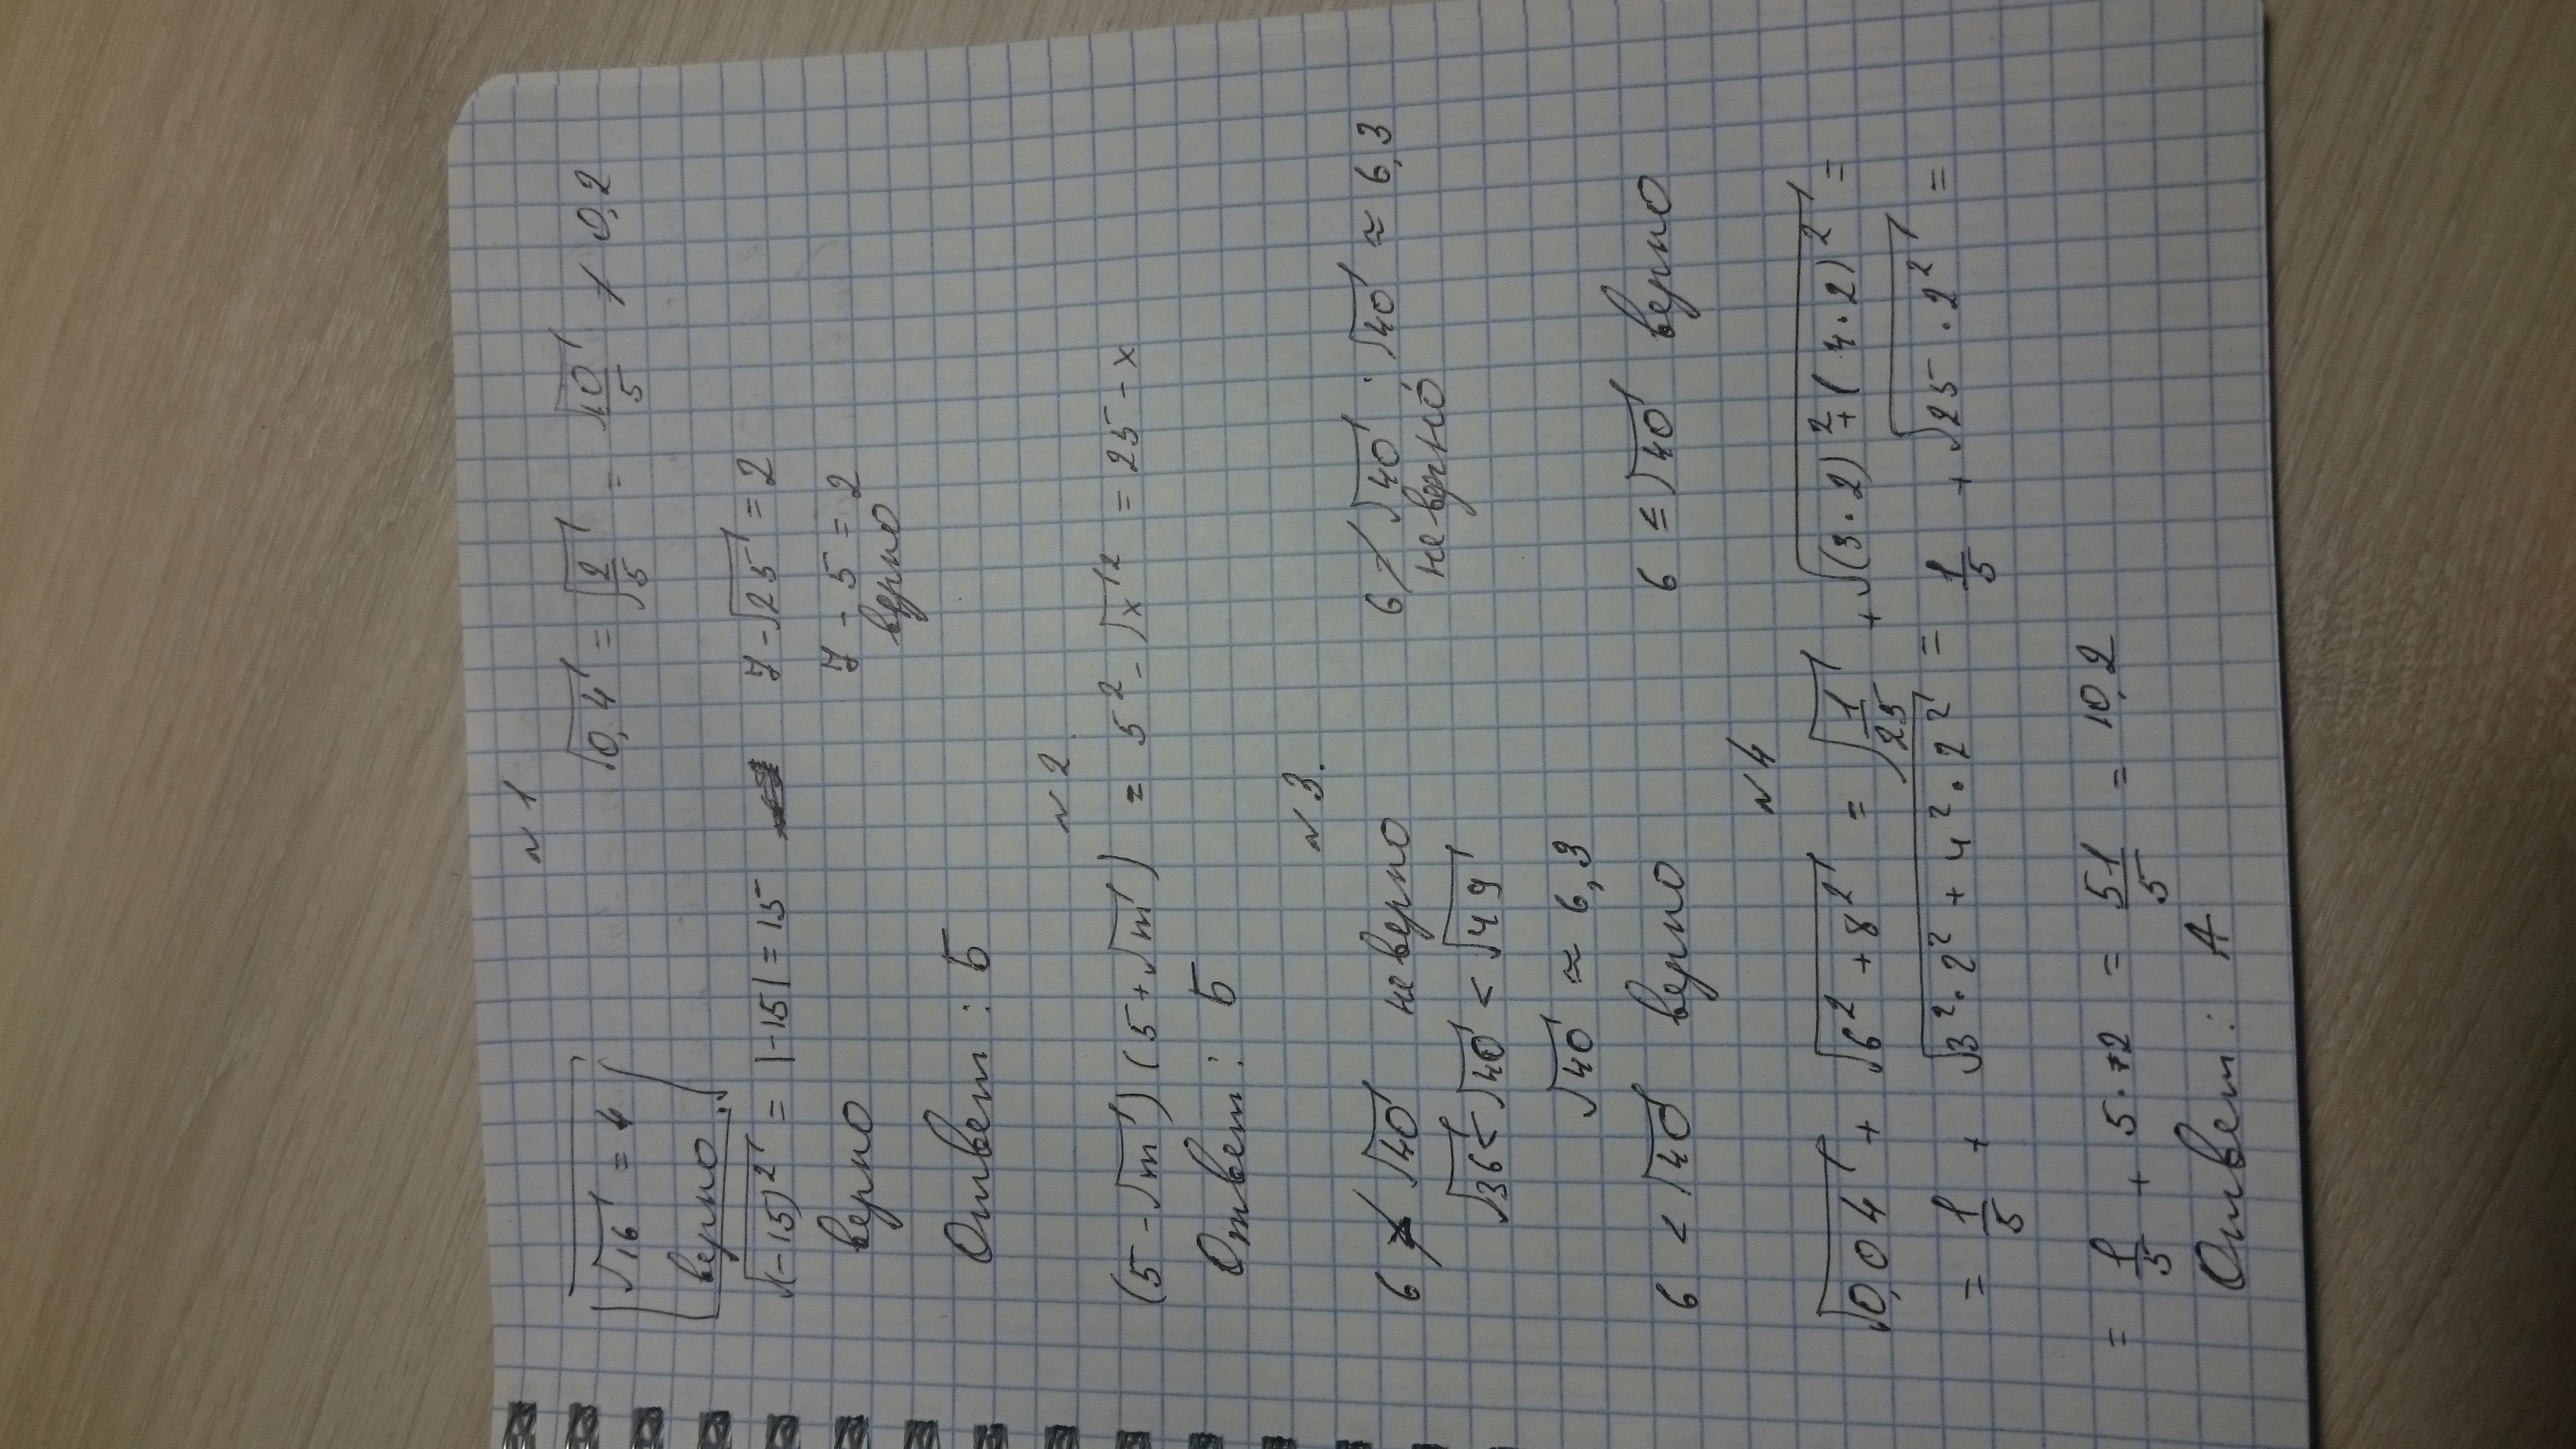 №1
√16 = 4   √0,4 = √2/5 = √10/5 ≠ 0,2
верно
√(-15)² = |-15| = 15   7 - √25 = 2
верно   7 - 5 = 2
верно
Ответ: Б
№2
(5 - √m)(5 + √m) = 5² - √x² = 25 - x
Ответ: Б
№3.
6 > √40 неверно   6 > √40 . √40 ≈ 6,3
√36 < √40 < √49   неверно
√40 ≈ 6,3
6 < √40 верно   6 ≤ √40 верно
№4
√0,04 + √6² + 8² = √1/25 + √(3·2)² + (4·2)² =
= 1/5 + √3²·2² + 4²·2² = 1/5 + √25·2² =
= 1/5 + 5·2 = 51/5 = 10,2
Ответ: А